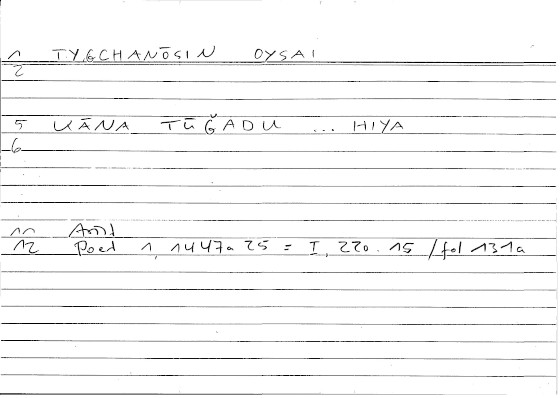 1 TYGCHANŌSIN OYSAI
2
5 KĀNA TŪǦADU ... HIYA
6
11 Arist
12 Poet 1, 1447a 25 = I, 220.15 / fol 131a